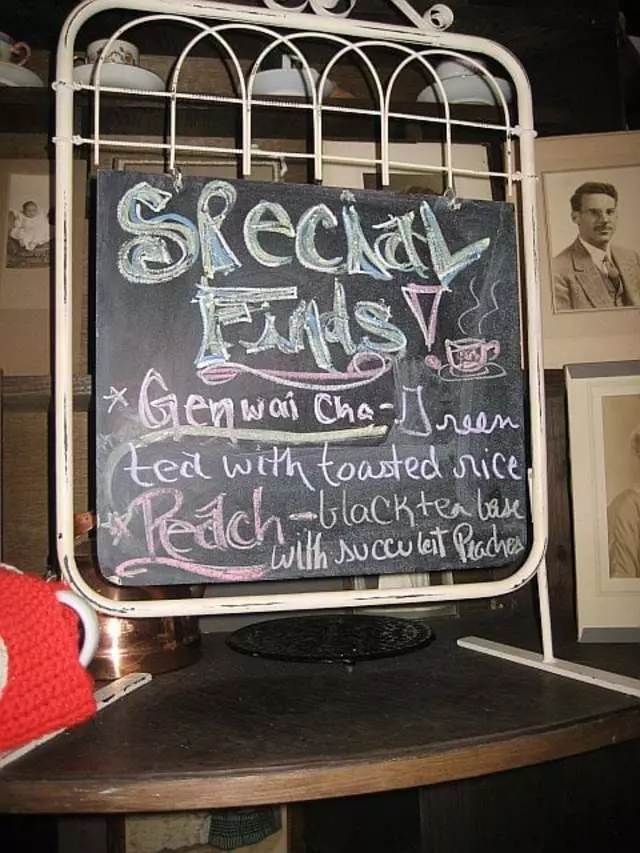 Special
Finds!
* Genwai Cha - Green
tea with toasted rice
* Peach - black tea base
with succulent Peaches